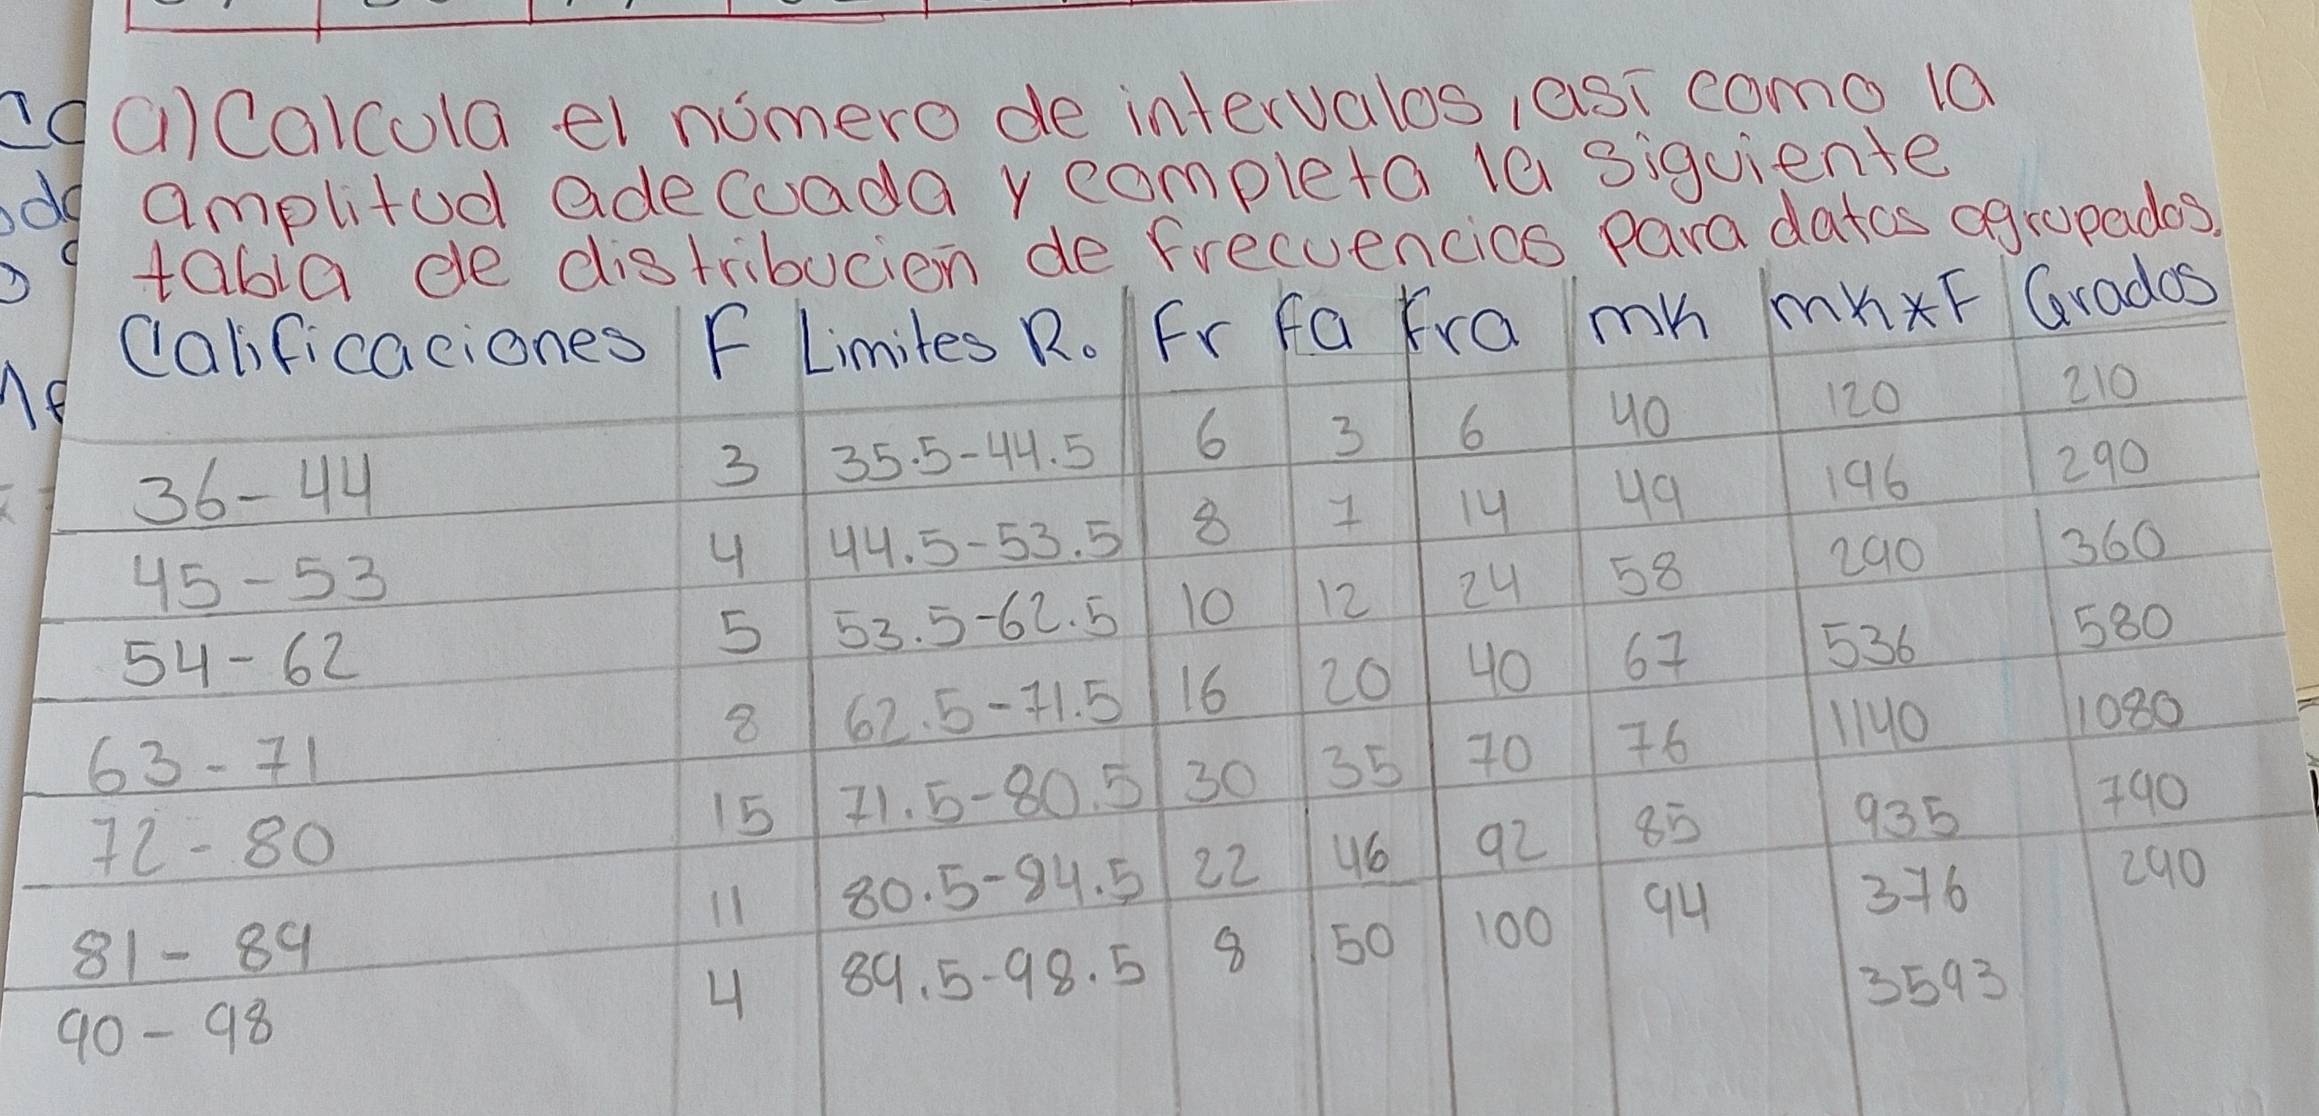 a) Calcula el número de intervalos, así como la
amplitud adecuada y completa la siguiente
tabla de distribución de frecuencias para datos agrupados.
Calificaciones F Limites R. Fr Fa Fra mk mk×F Grados
36-44 3 35.5-44.5 6 3 6 40 120 210
45-53 4 44.5-53.5 8 7 14 49 196 290
54-62 5 53.5-62.5 10 12 24 58 290 360
63-71 8 62.5-71.5 16 20 40 67 536 580
72-80 15 71.5-80.5 30 35 70 76 1140 1080
81-89 11 80.5-94.5 22 46 92 85 935 790
90-98 4 89.5-98.5 8 50 100 94 376 290
3593